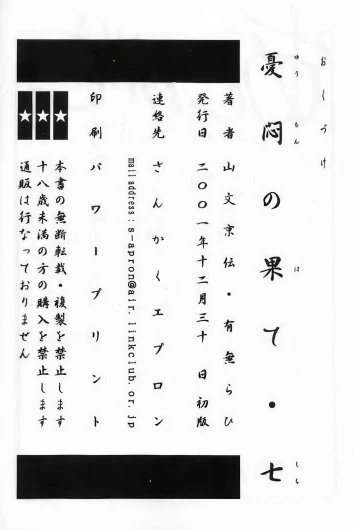 おくづけ
憂悶の果て・七
ゆうもん は しち
著者 山文京伝・有無らひ
発行日 二〇〇一年十二月三十日 初版
連絡先 さんかくエプロン
mail address: s-apron@air.linkclub.or.jp
印刷 パワープリント
本書の無断転載・複製を禁止します
十八歳未満の方の購入を禁止します
通販は行なっておりません